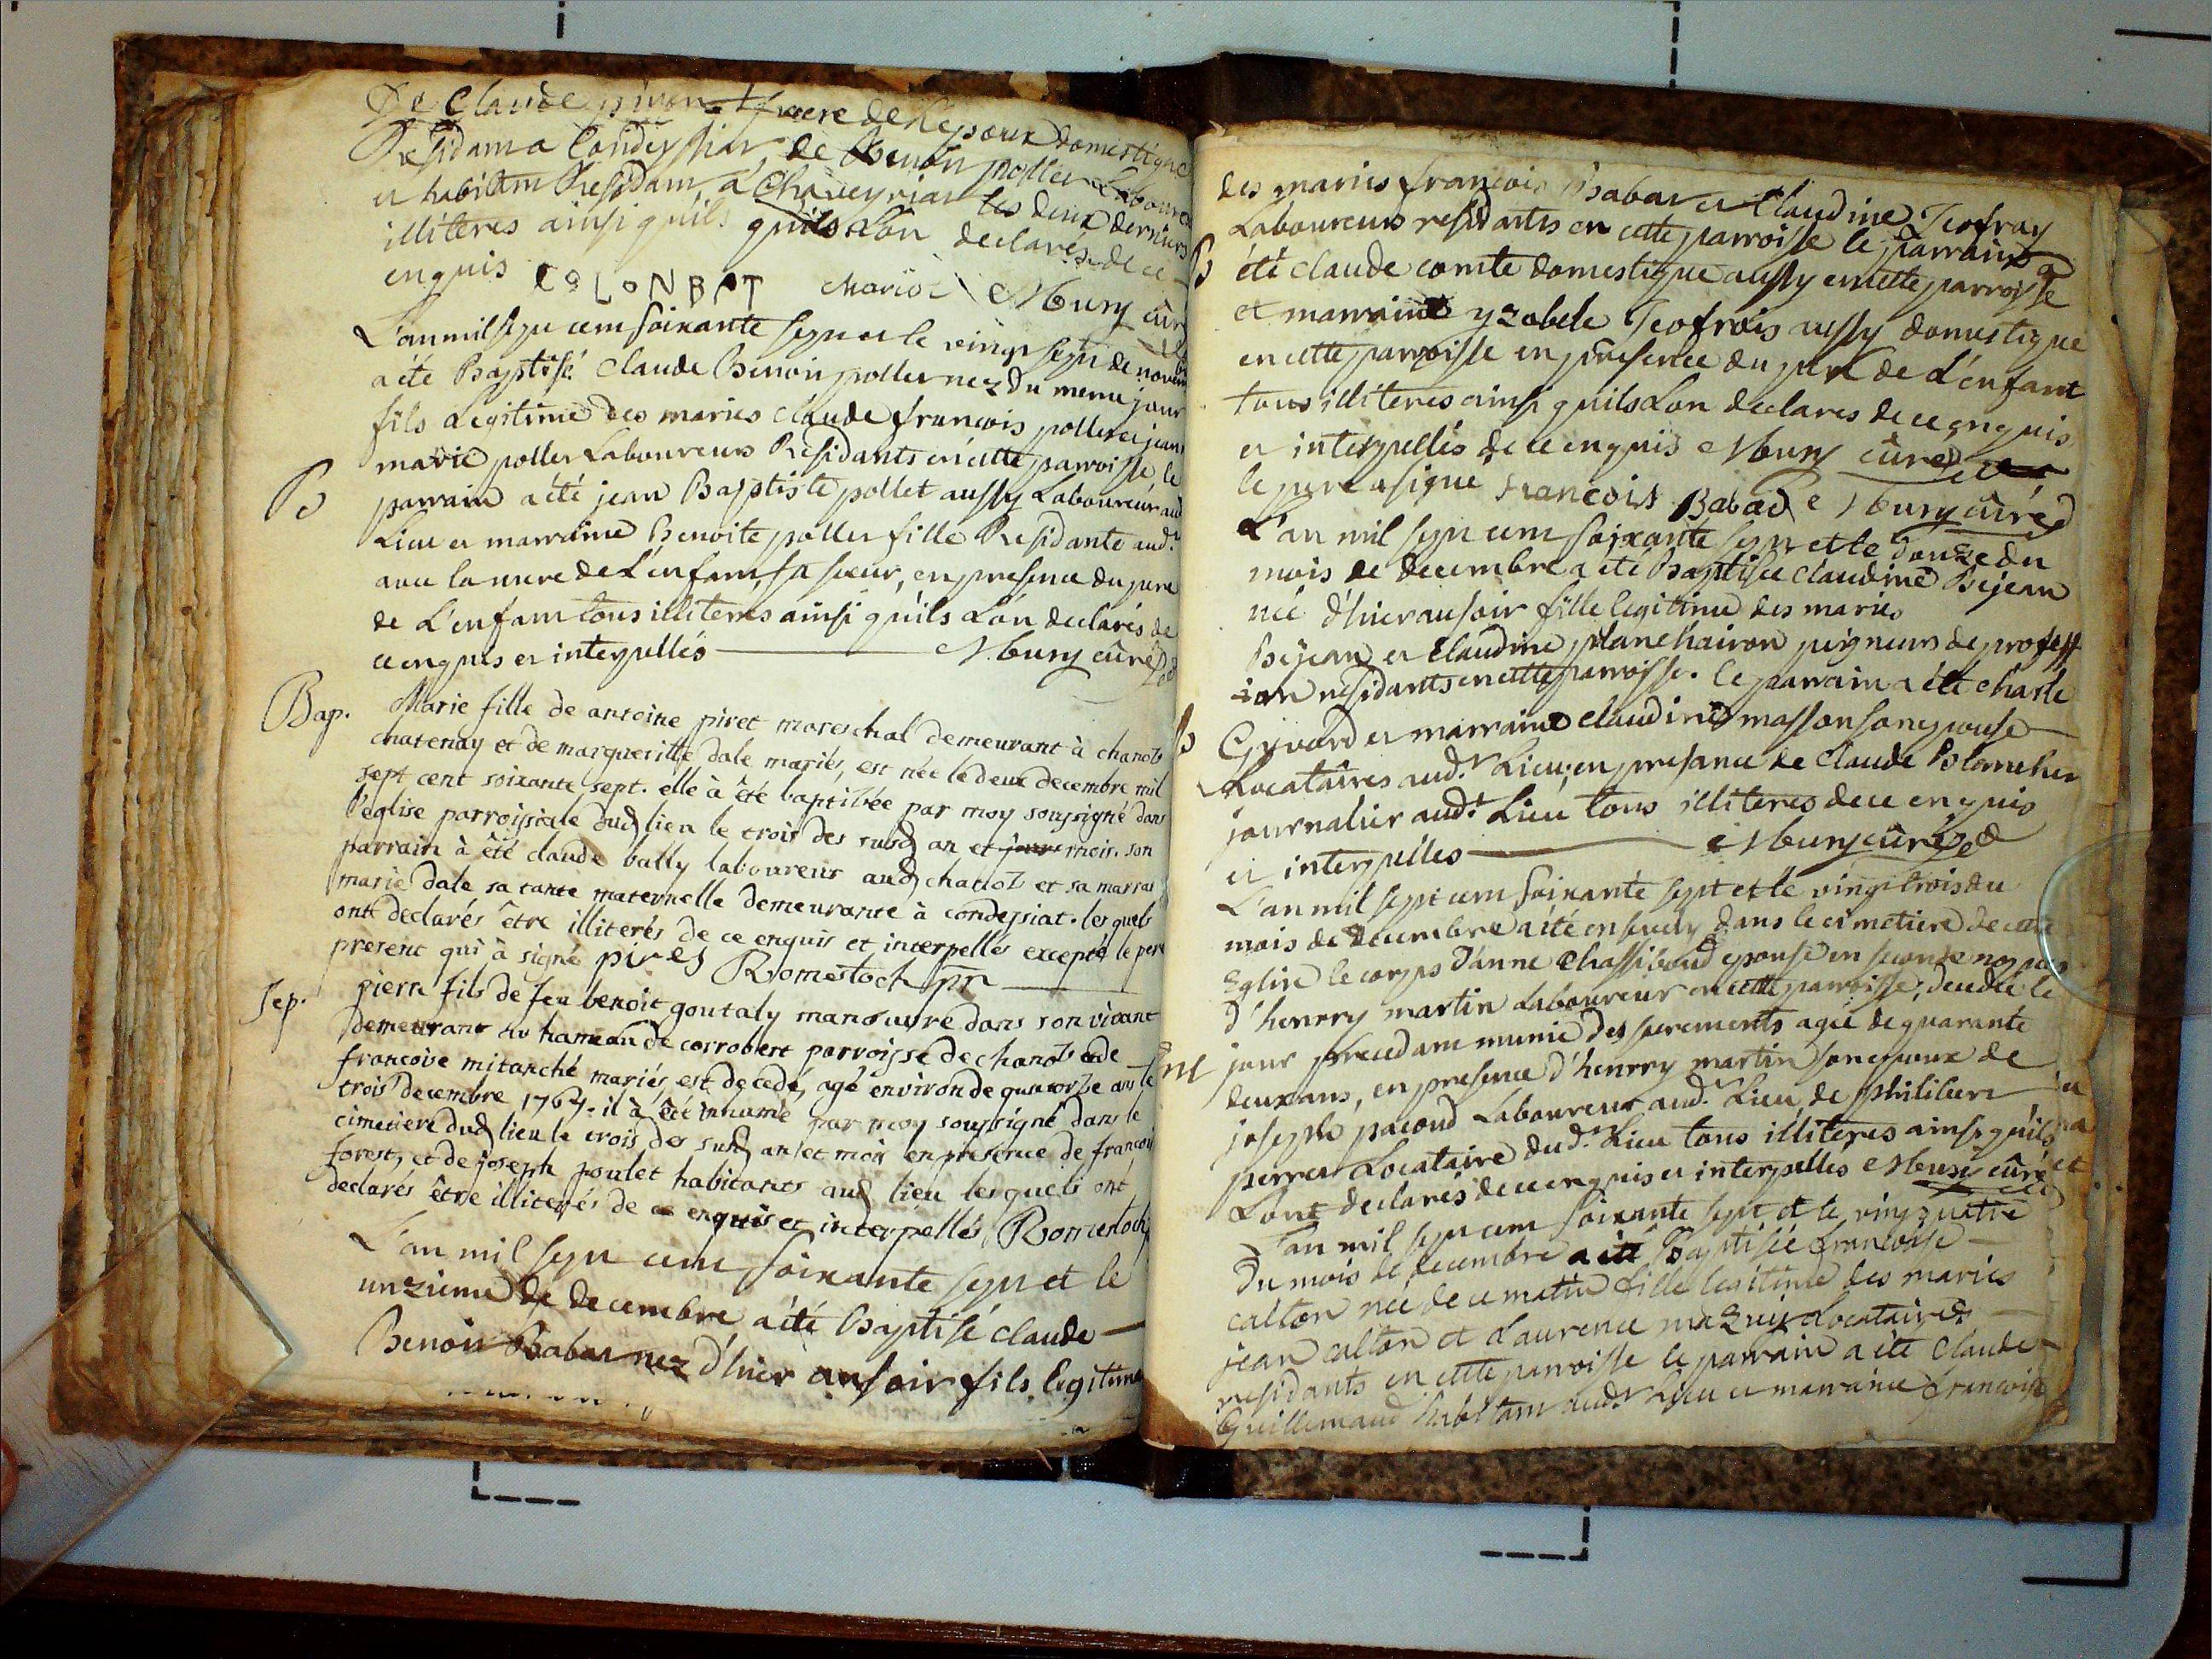 De Claude piron frere de Lepoux domestique
Residam a Condeyssiat, de Benoit pollet Laboureur
et habitam Residam, a Chaveyriat les deux derniers
illiteres ainsi quils quils Lon declarés de ce
enquis COLONBAT Marion Mbury curé
L'an mil sept cem soixante sept et le vingt sept de novem
a été Baptisé Claude Benoit pollet nez du meme jour
fils Legitime des maries Claude françois pollet et jeanne
marie pollet Laboureurs Residants en cette parroisse, le
B
parrain a été jean Baptiste pollet aussy Laboureur aud
Lieu et marraine Benoite pollet fille Residante aud.t
avec la mere de L'enfam, sa sœur, en presence du pere
de L'enfam tous illiteres ainsi quils L'on declarés de
ce enquis et interpellés Mbury curé
Bap. Marie fille de antoine piret mareschal demeurant à chanoz
chatenay et de margueritte dale mariés, est née le deux decembre mil
sept cent soixante sept. elle à été baptisée par moy soussigné dans
l'eglise parroissiale dud lieu le trois des susd an et jour mois. son
parrain à été claude bally laboureur aud chanoz et sa marrai
marie dale sa tante maternelle demeurante à condeysiat. les quels
ont declarés être illiterés de ce enquis et interpellés excepté le pere
present qui à signé pires Romestoch ptr
Sep. pierre fils de feu benoit goutaly manouvre dans son vivant
demeurant au hameau de corrobert parroisse de chanoz et de
francoise mitanché mariés, est decedé, agé environ de quatorze ans le
trois decembre 1767. il à été inhumé par moy soussigné dans le
cimetiere dud lieu le trois des susd an et mois en presence de francois
forest, et de joseph poulet habitants aud lieu lesquels ont
declarés être illiterés de ce enquis et interpellés Romestoch
L'an mil sept cem soixante sept et le
unzieme de decembre a été Baptisé claude
Benoit Babat nez d'hier au soir fils legitime
des maries françois Babat et Claudine Jeofray
Laboureurs residants en cette parroisse le parrain a
B été claude comte domestique aussy en cette parroisse
et marraine yzabele Jeofrois aussy domestique
en cette parroisse en presence du pere de L'enfant
tous illiteres ainsi quils Lon declares de ce enquis
et interpellés de ce enquis Mbury curé
le pere a signé francois Babad Mbury curé
L'an mil sept cem soixante sept et le douze du
mois de decembre a été Baptisée Claudine Bejean
née d'hier au soir fille legitime des maries
Bejean et Claudine planchairon peigneurs de profess
ion residants en cette parroisse. le parrain a été charle
B Guard et marraine Claudine masson son epouse
Locataires aud.t Lieu; en presance de Claude Blancher
journalier aud.t Lieu tous illiteres de ce enquis
et interpellés Mbury curé
L'an mil sept cem soixante sept et le vingt trois du
mois de decembre a été ensevely dans le cimetiere de cette
Eglise le corps d'anne Chassiboud epouse en seconde nopces
d'henrry martin Laboureur en cette parroisse, decedée le
M jour precedam munie des sacrements agée de quarante
deux ans, en presence d'henrry martin son epoux de
joseph pacoud Laboureur aud.t Lieu, de philibert
perret Locataire dud.t Lieu tous illiteres ainsi quils
Lont declarés de ce enquis et interpellés Mbury curé
L'an mil sept cem soixante sept et le vingt quatre
du mois de decembre a été Baptisée francoise
catton née de ce matin fille legitime des maries
jean catton et Laurence mazuy Locataires
residants en cette parroisse le parrain a été Claude
Guillemaud habitam aud.t Lieu et marraine francoise